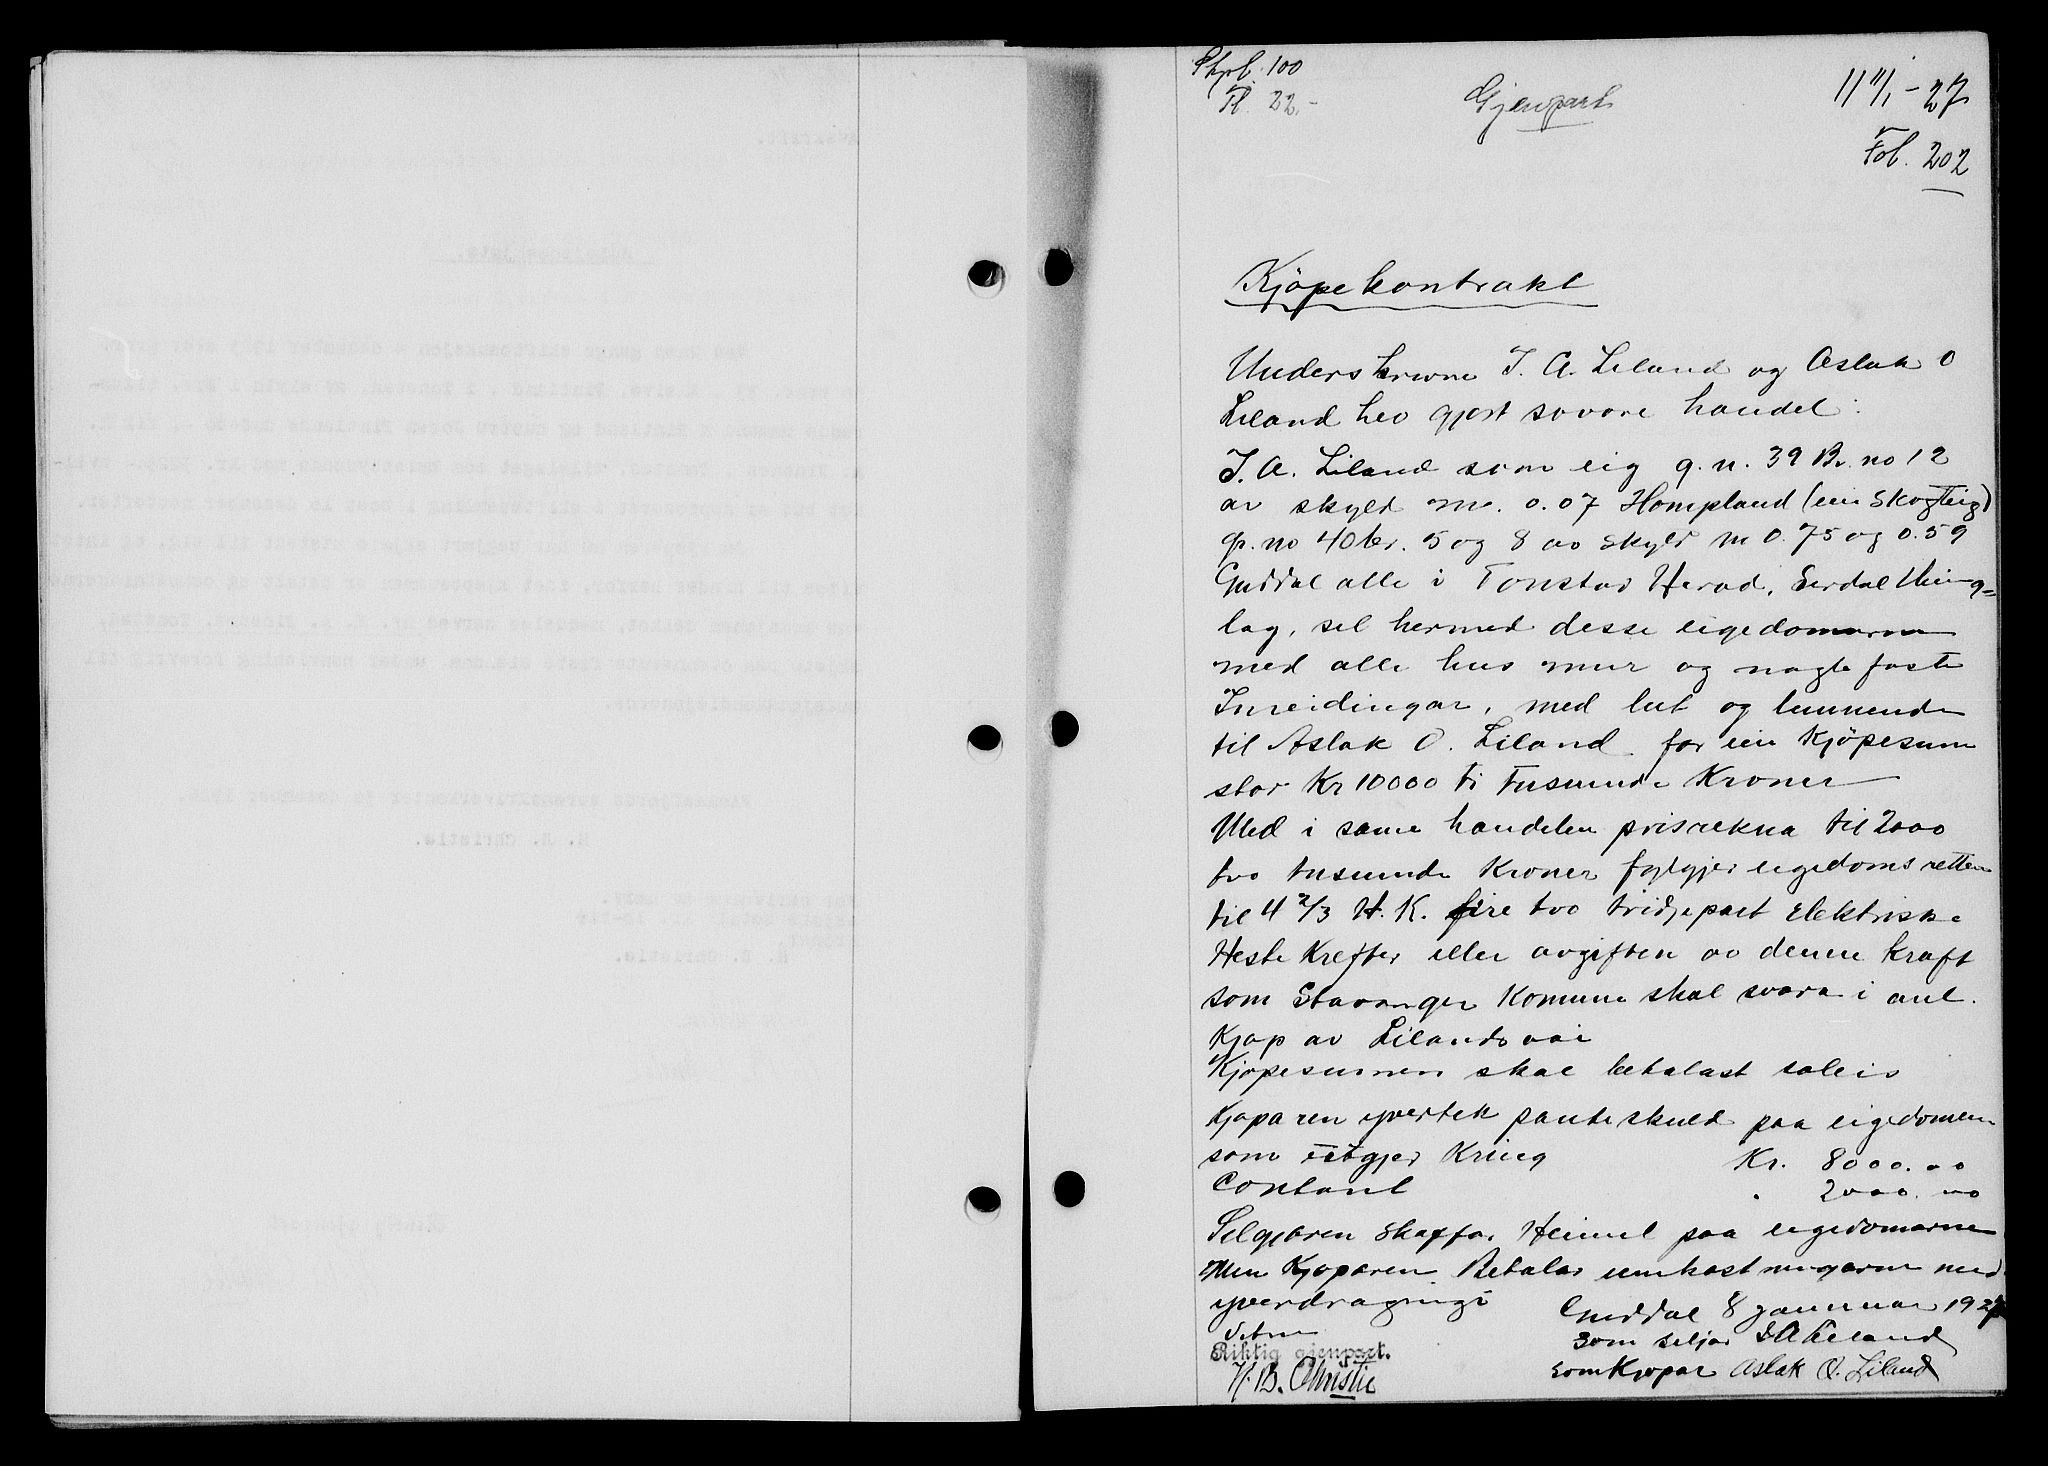 Gjenpart
11 11/1 - 27
Fl. 22.-
Fol. 202
Kjöpekontrakt
Underskrivne T. A. Liland og Aslak O
Liland hev gjort sovore handel:
T. A. Liland som eig g. n. 39 Br. no 12
av skyld m. 0.07 Hompland (ein Skogteig)
g. no 40 br. 5 og 8 av skyld m 0.75 og 0.59
Guddal alle i Tonstad Herad, Sirdal thing=
lag, sel hermed desse eigedomarne
med alle hus mur og naglefaste
Inreidingar, med lut og lunnende
til Aslak O. Liland for ein Kjöpesum
stor Kr 10000 ti tusunde Kroner
Med i same handelen prisrekna til 2000
tvo tusunde Kroner fylgjer eigedomsretten
til 4 2/3 H. K. fire tvo tridjepart Elektriske
Heste Krefter eller avgiften av denne kraft
som Stavanger Komune skal svara i anl.
Kjøp av Lilands
Kjøpesumen skal betalast soleis
Kjøparen yvertek panteskuld paa eigedomen
som utgjer Kring Kr. 8000.00
Contant " 2000.00
Seljaren skaffar Heimel paa eigedomarne
Men Kjøparen Betalar umkostningarne med
yverdragingi
Guddal 8 januar 1927
som seljar T A Liland
som Kjøpar Aslak O. Liland
Riktig gjenpart.
H. B. Christie